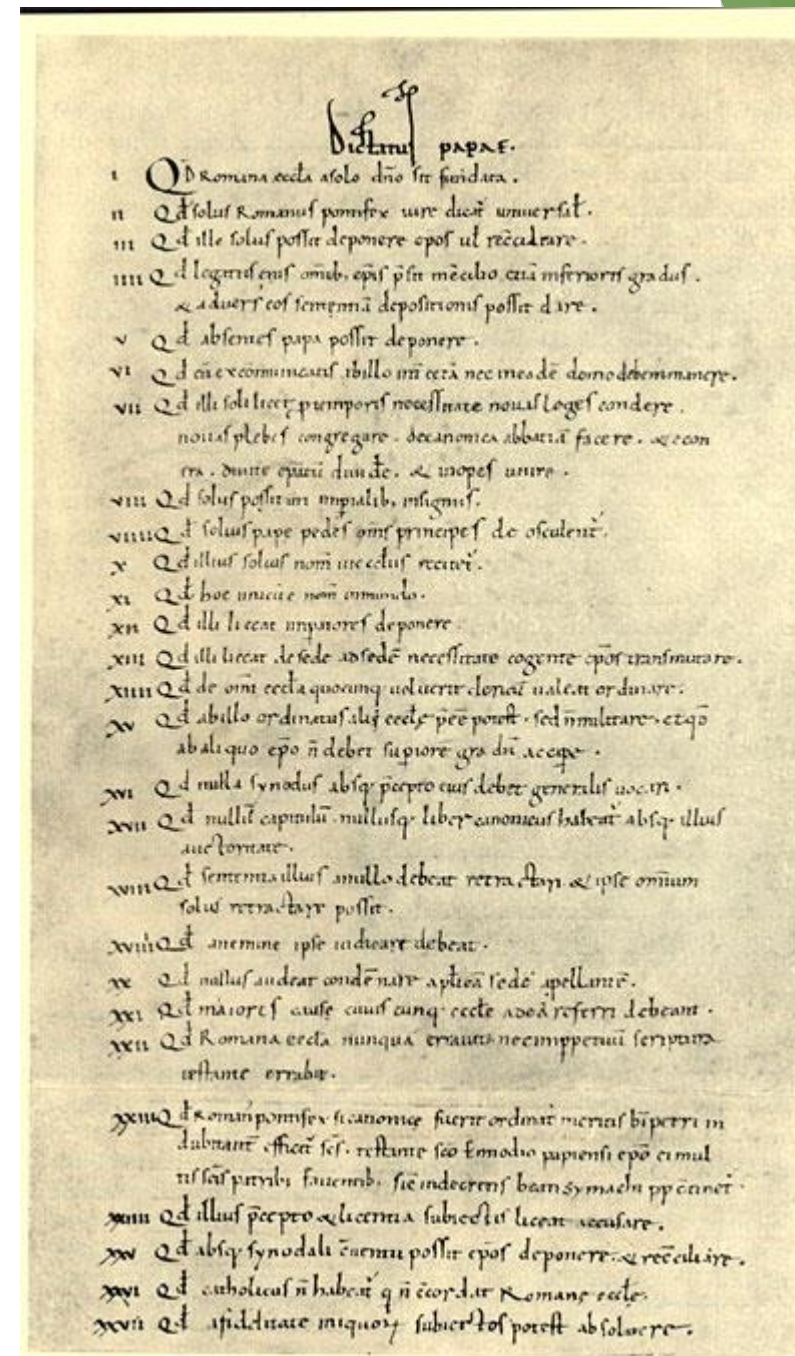 Dictatus papae.
I QD Romana eccła asolo dño sit fundata.
II Qđ solus Romanus pontifex iure dicať universał.
III Qđ ille solus possit deponere ep̄os uł rec̄ciliare.
IIII Qđ legatus eius om̄ib; ep̄is p̄sit in c̄cilio etiā inferioris gradus.
& adversꝰ eos sententiā depositionis possit dare.
V Qđ absentes papa possit deponere.
VI Qđ cū excommunicatis ab illo int̄ cetā nec in eadē domo debem' manere.
VII Qđ illi soli licet p temporis necessitate novas leges condere.
novas plebes congregare. de canonica abbatiā facere. & econ
tra. divite ep̄atū dividere. & inopes unire.
VIII Qđ solus possit uti imp̄ialib; insigniis.
VIIII Qđ solius pape pedes om̄s principes deosculent'.
X Qđ illius solius nom̄ in ecclīis recitet'.
XI Qđ hoc unicū ē nom̄ in mundo.
XII Qđ illi liceat imp̄atores deponere.
XIII Qđ illi liceat de sede ad sedē necessitate cogente ep̄os transmutare.
XIIII Qđ de om̄i eccła quocunq; voluerit clericū valeat ordinare.
XV Qđ ab illo ordinatus alii eccłę p̄eē potest. sed n̄ militare. et qđ
ab aliquo ep̄o n̄ debet sup̄iorē gradū accipe.
XVI Qđ nulla synodus absq; p̄cepto eius debet generalis vocari.
XVII Qđ nullū capitulū nullusq; liber canonicus habeat' absq; illius
auctoritate.
XVIII Qđ sententia illius a nullo debeat retractari & ipse omnium
solus retractare possit.
XVIIII Qđ a nemine ipse iudicare debeat.
XX Qđ nullus audeat condēnare apłicā sedē apellantē.
XXI Qđ maiores cause cuiuscunq; eccłe ad eā referri debeant.
XXII Qđ Romana eccła nunquā erravit. nec imppetuū scriptura
testante errabit.
XXIII Qđ Roman' pontifex si canonice fuerit ordinat' meritis b̄i petri in
dubitant' efficit' sc̄s. testante sc̄o Ennodio papiensi ep̄o ei mul
tis sc̄is patrib; faventib; sic̄ in decretis beati symachi pp c̄tinet'.
XXIIII Qđ illius p̄cepto & licentia subiectis liceat accusare.
XXV Qđ absq; synodali c̄ventu possit ep̄os deponere. & rec̄ciliare.
XXVI Qđ catholicus n̄ habeat' q n̄ c̄cordat Romane eccłe.
XXVII Qđ a fidelitate iniquoꝝ subiectos potest absolvere.